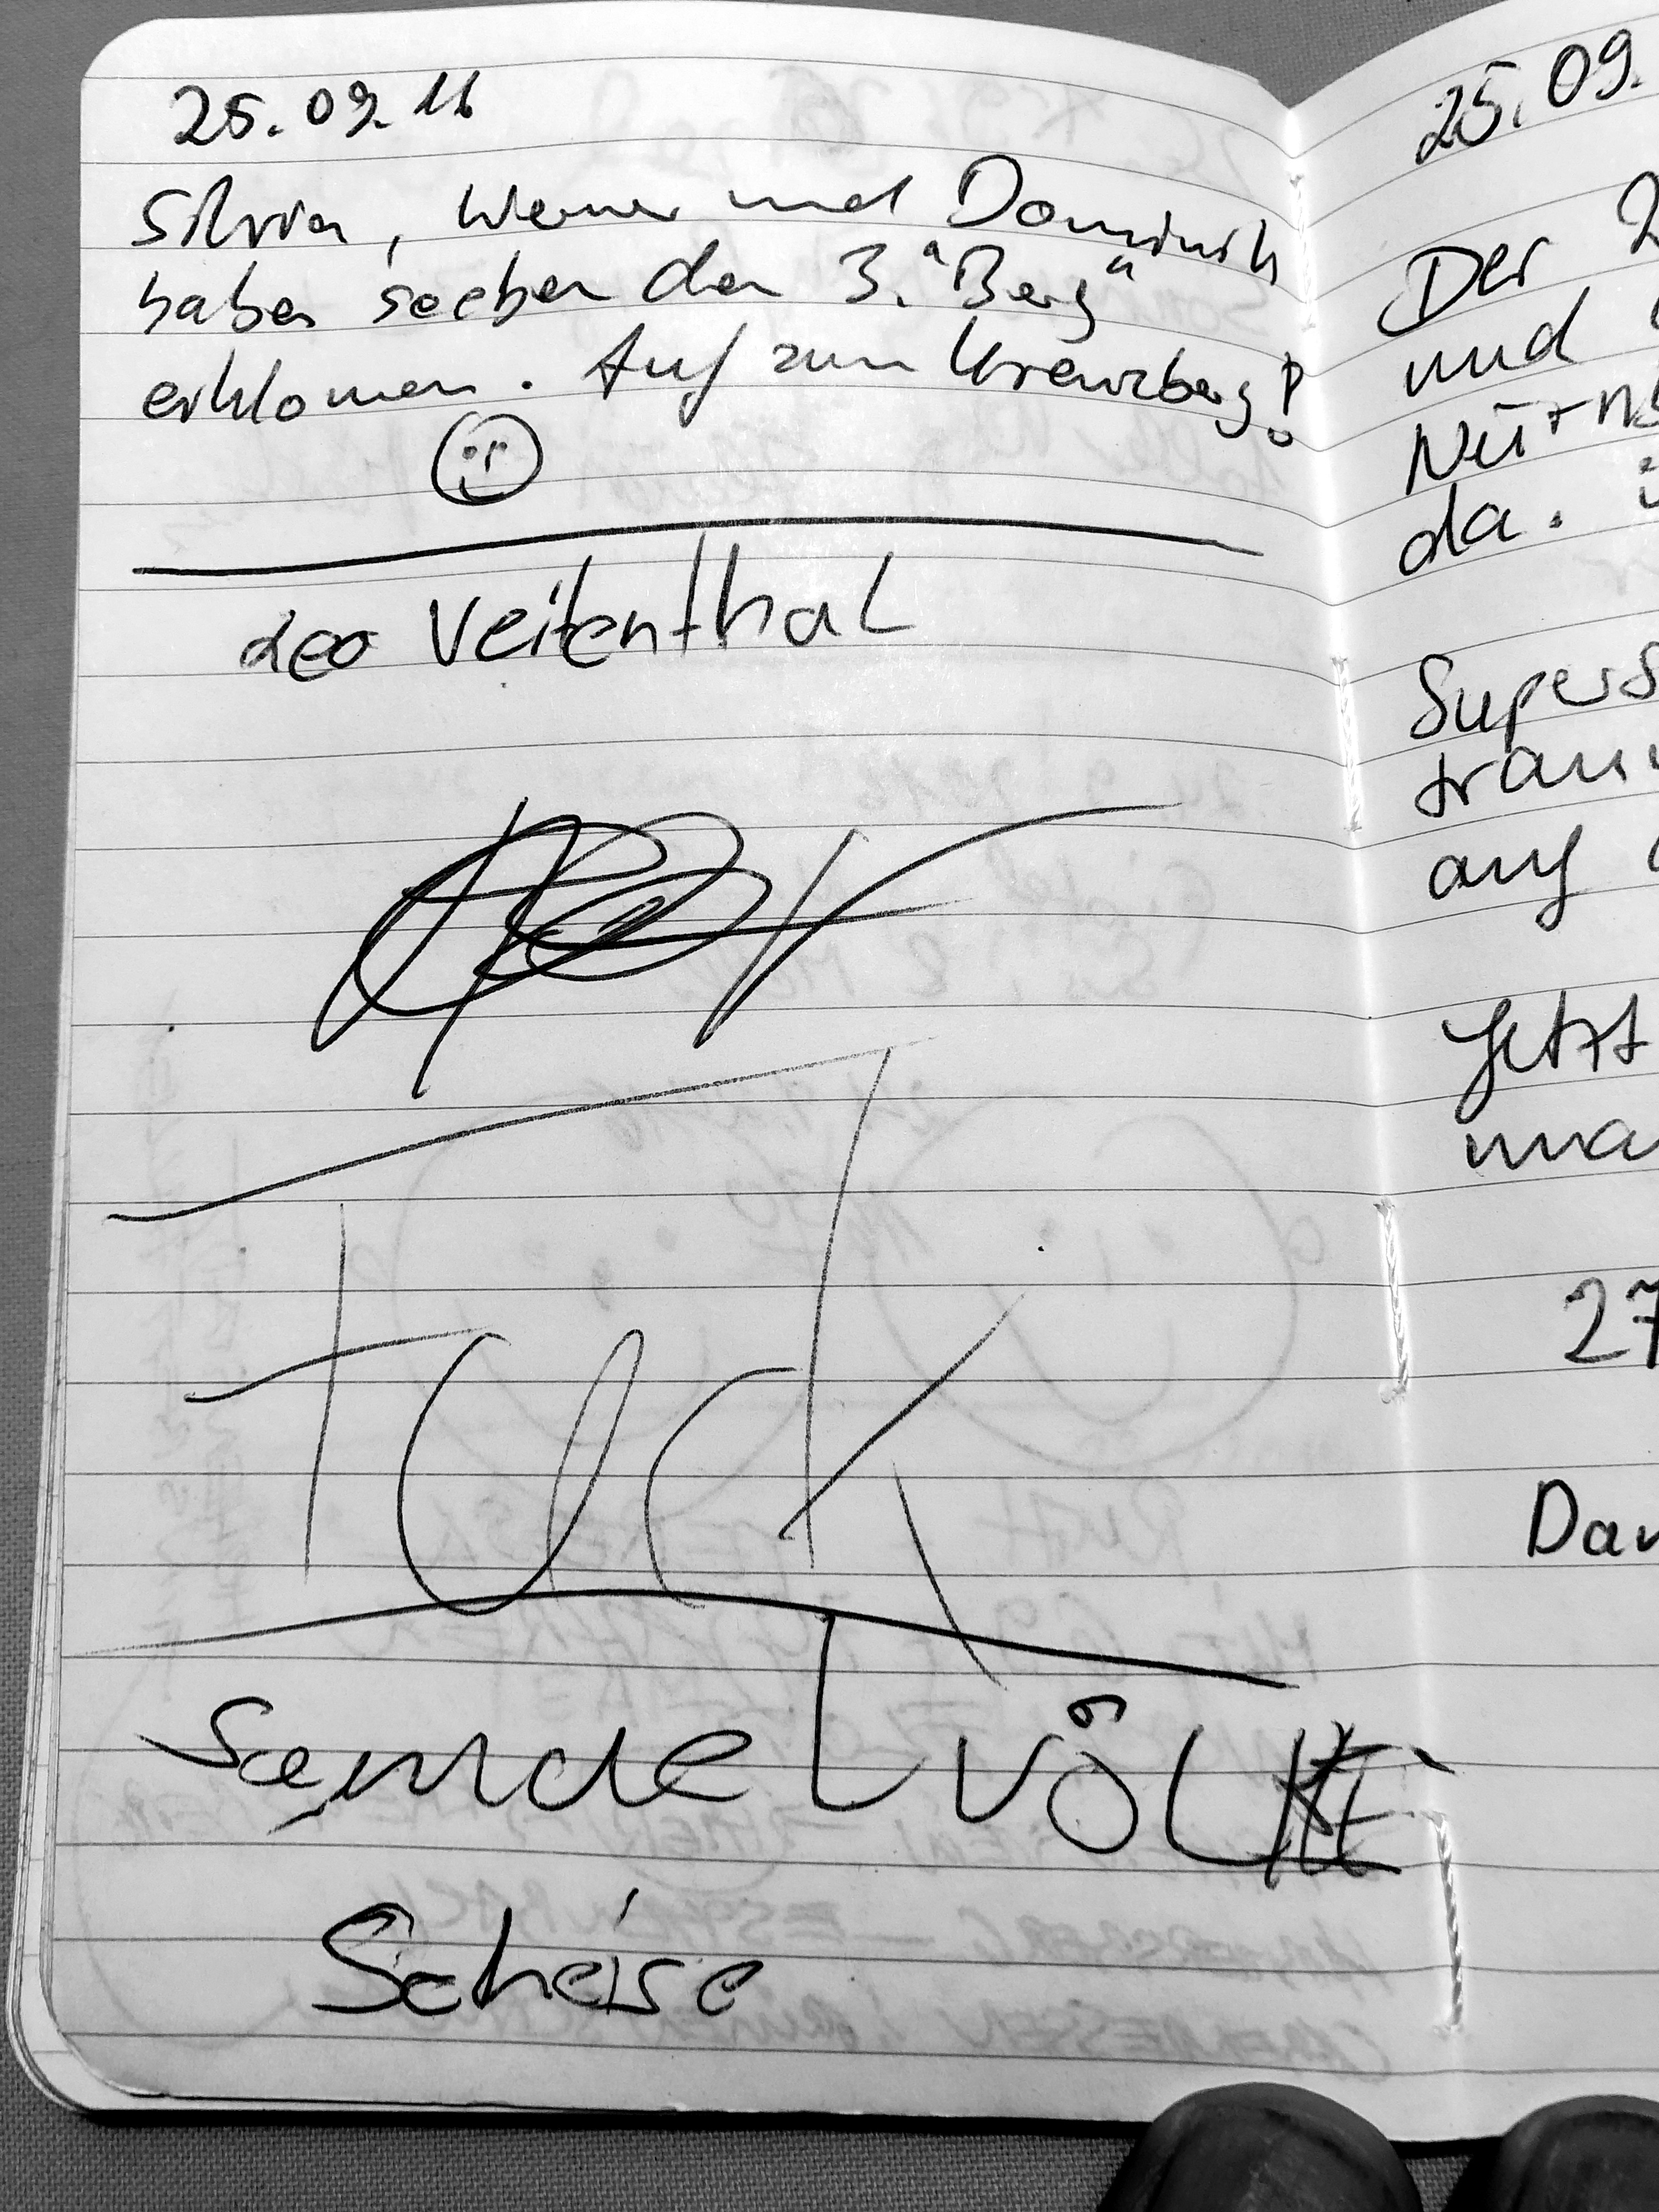 25.09.16
Silvia, Werner und Dominik
haben soeben den 3. "Berg"
erklomen. Auf zum Kreuzberg!
Leo Veitenthal
FUCK
VÖLKE
Scheise
25.09.
Der 2
und
Nürnb
da.
Supers
traum
auf
Jetzt
27
Dan